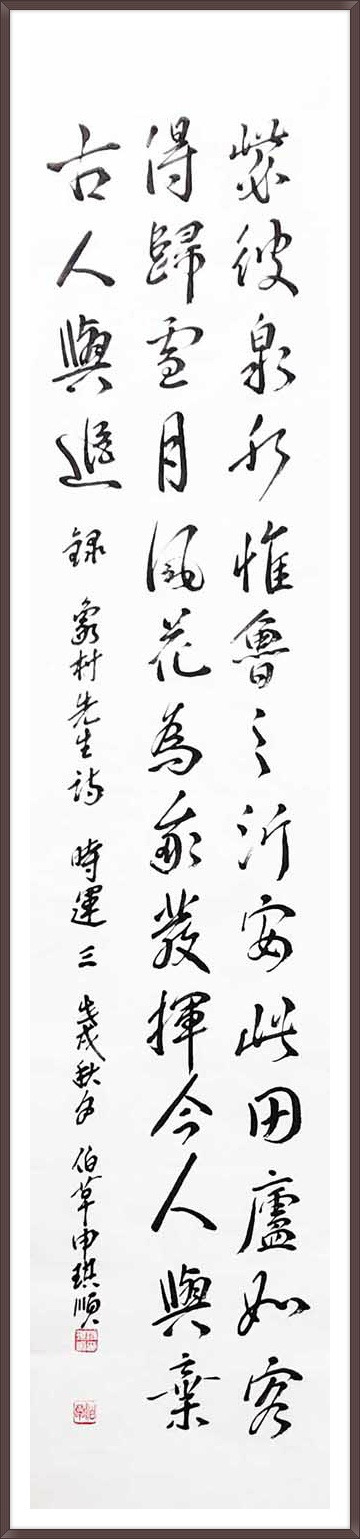 毖彼泉水惟魯之沂安此田廬如客
得歸雪月風花為我發揮今人與棄
古人與追 錄 象村先生詩 時運 三 戊戌秋 伯草申琪順